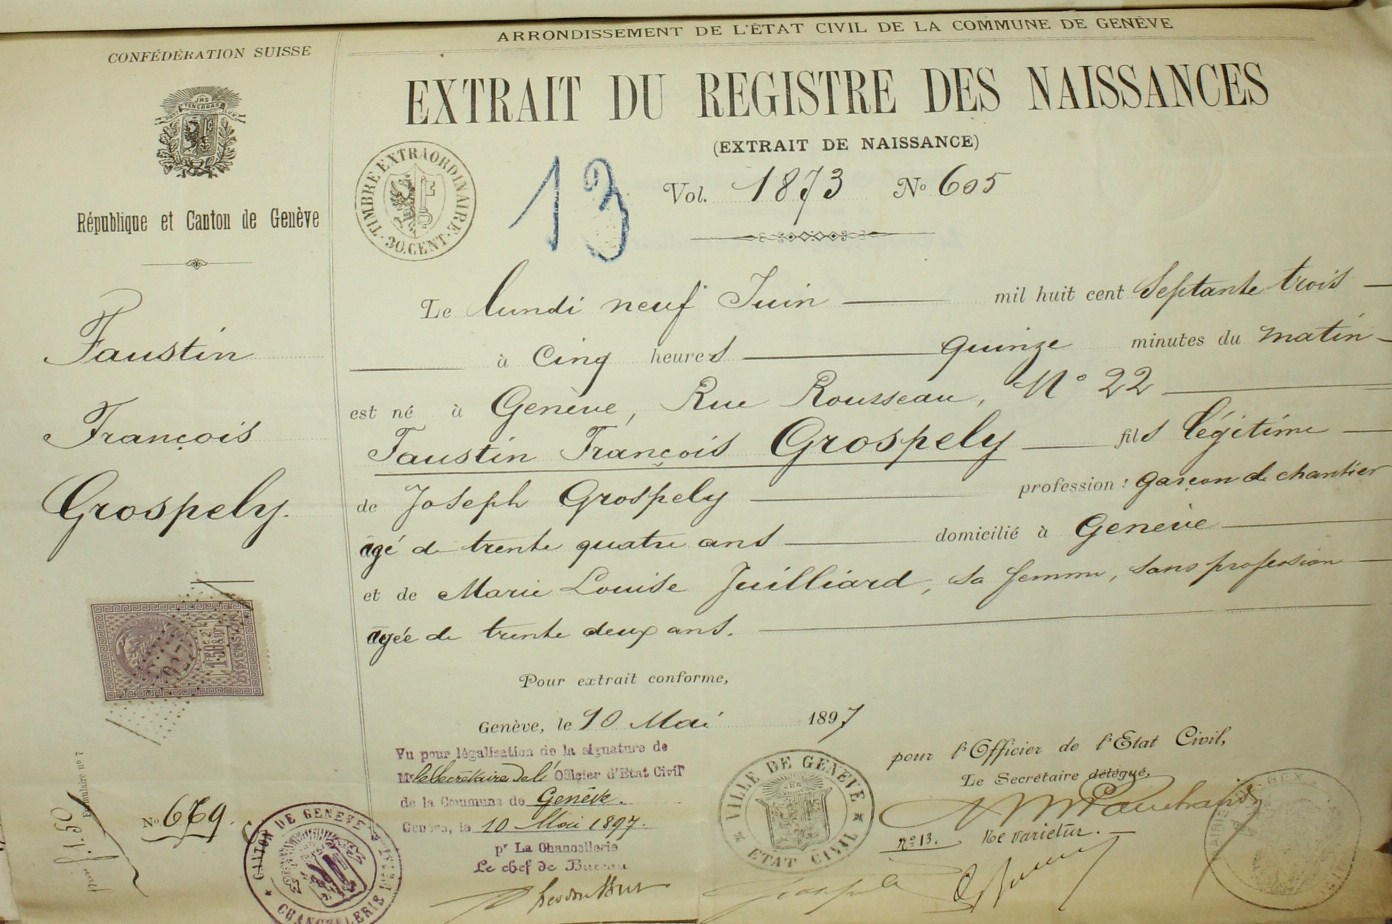 ARRONDISSEMENT DE L'ÉTAT CIVIL DE LA COMMUNE DE GENÈVE
CONFÉDÉRATION SUISSE
République et Canton de Genève
Faustin
François
Grospely.
EXTRAIT DU REGISTRE DES NAISSANCES
(EXTRAIT DE NAISSANCE)
TIMBRE EXTRAORDINAIRE
30. CENT.
13
Vol. 1873 No 605
Le lundi neuf Juin mil huit cent Septante trois
à cinq heures quinze minutes du matin
est né à Genève, Rue Rousseau, No 22
Faustin François Grospely fils légitime
de Joseph Grospely profession: garçon de chantier
âgé de trente quatre ans domicilié à Genève
et de Marie Louise Juilliard, sa femme, sans profession
âgée de trente deux ans.
Pour extrait conforme,
Genève, le 10 Mai 1897
Vu pour légalisation de la signature de
Mr le Secrétaire del é Officier d'Etat Civil
de la Commune de Genève.
Genève, le 10 Mai 1897.
pr La Chancellerie
Le chef de Bureau
pour l'Officier de l'Etat Civil,
Le Secrétaire délégué,
no 13. Ne varietur.
VILLE DE GENÈVE
ETAT CIVIL
CANTON DE GENÈVE
CHANCELLERIE
Formulaire no 7
No 679.